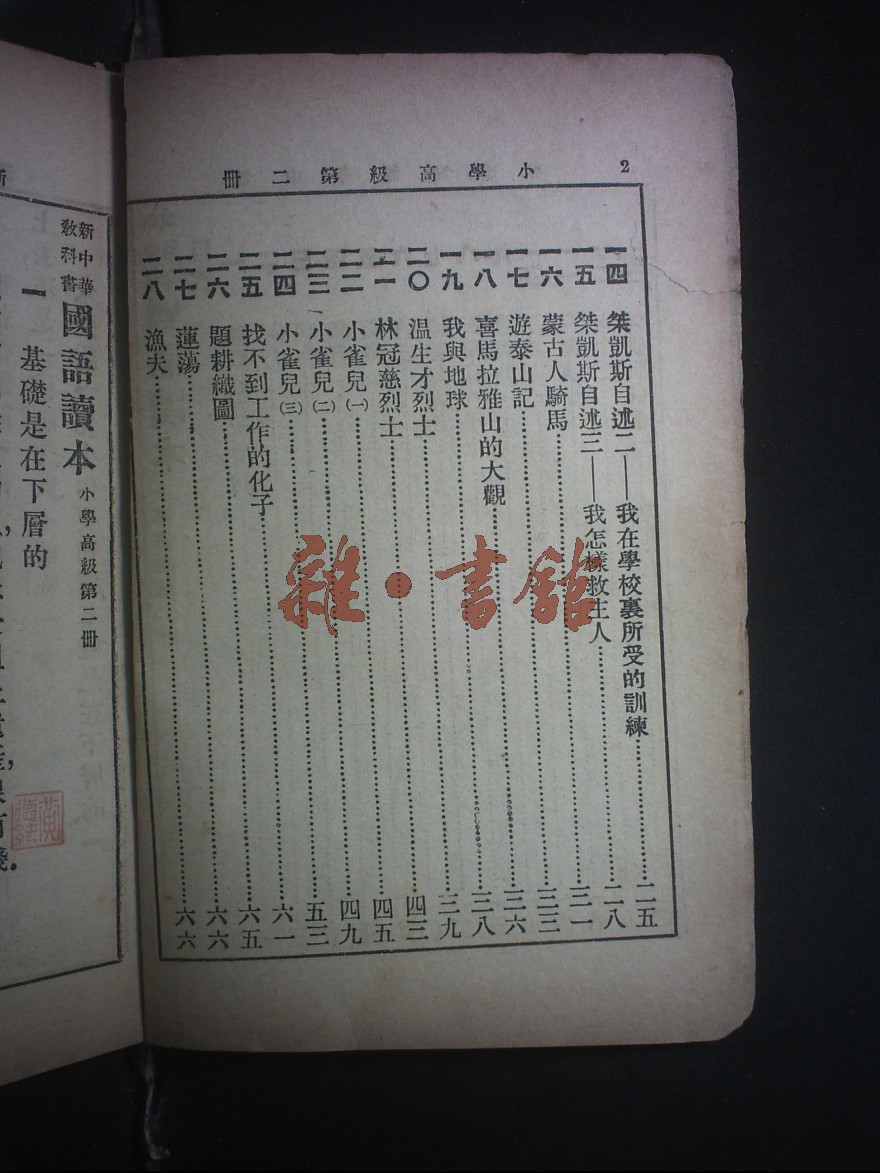 2
小學高級第二冊
一四 桀凱斯自述二——我在學校裏所受的訓練 二五
一五 桀凱斯自述三——我怎樣救生人 二八
一六 蒙古人騎馬 三一
一七 遊泰山記 三三
一八 喜馬拉雅山的大觀 三六
一九 我與地球 三八
二〇 温生才烈士 三九
二一 林冠慈烈士 四三
二二 小雀兒(一) 四五
二三 小雀兒(二) 四九
二四 小雀兒(三) 五三
二五 找不到工作的化子 六一
二六 題耕織圖 六五
二七 蓮蕩 六六
二八 漁夫 六六
雜·書館
新
新中華教科書 國語讀本 小學高級第二冊
一 基礎是在下層的